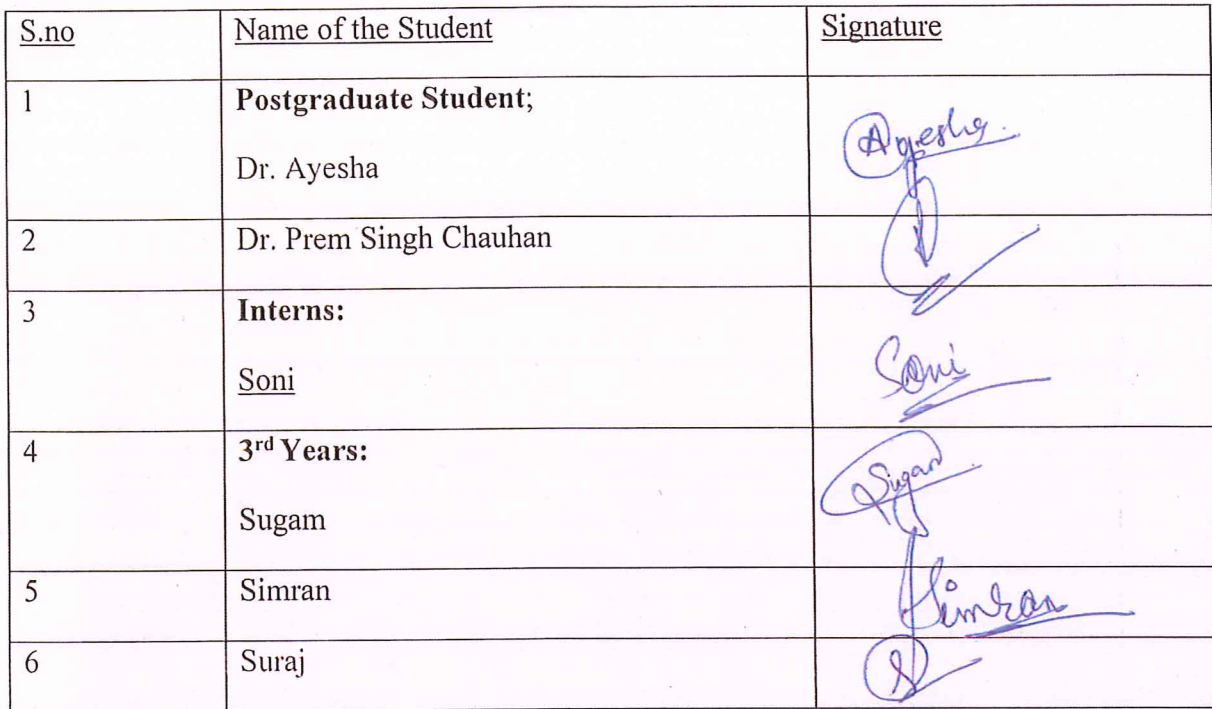 S.no Name of the Student Signature
1 Postgraduate Student;
Dr. Ayesha Ayesha
2 Dr. Prem Singh Chauhan
3 Interns:
Soni Soni
4 3rd Years:
Sugam
5 Simran Simran
6 Suraj